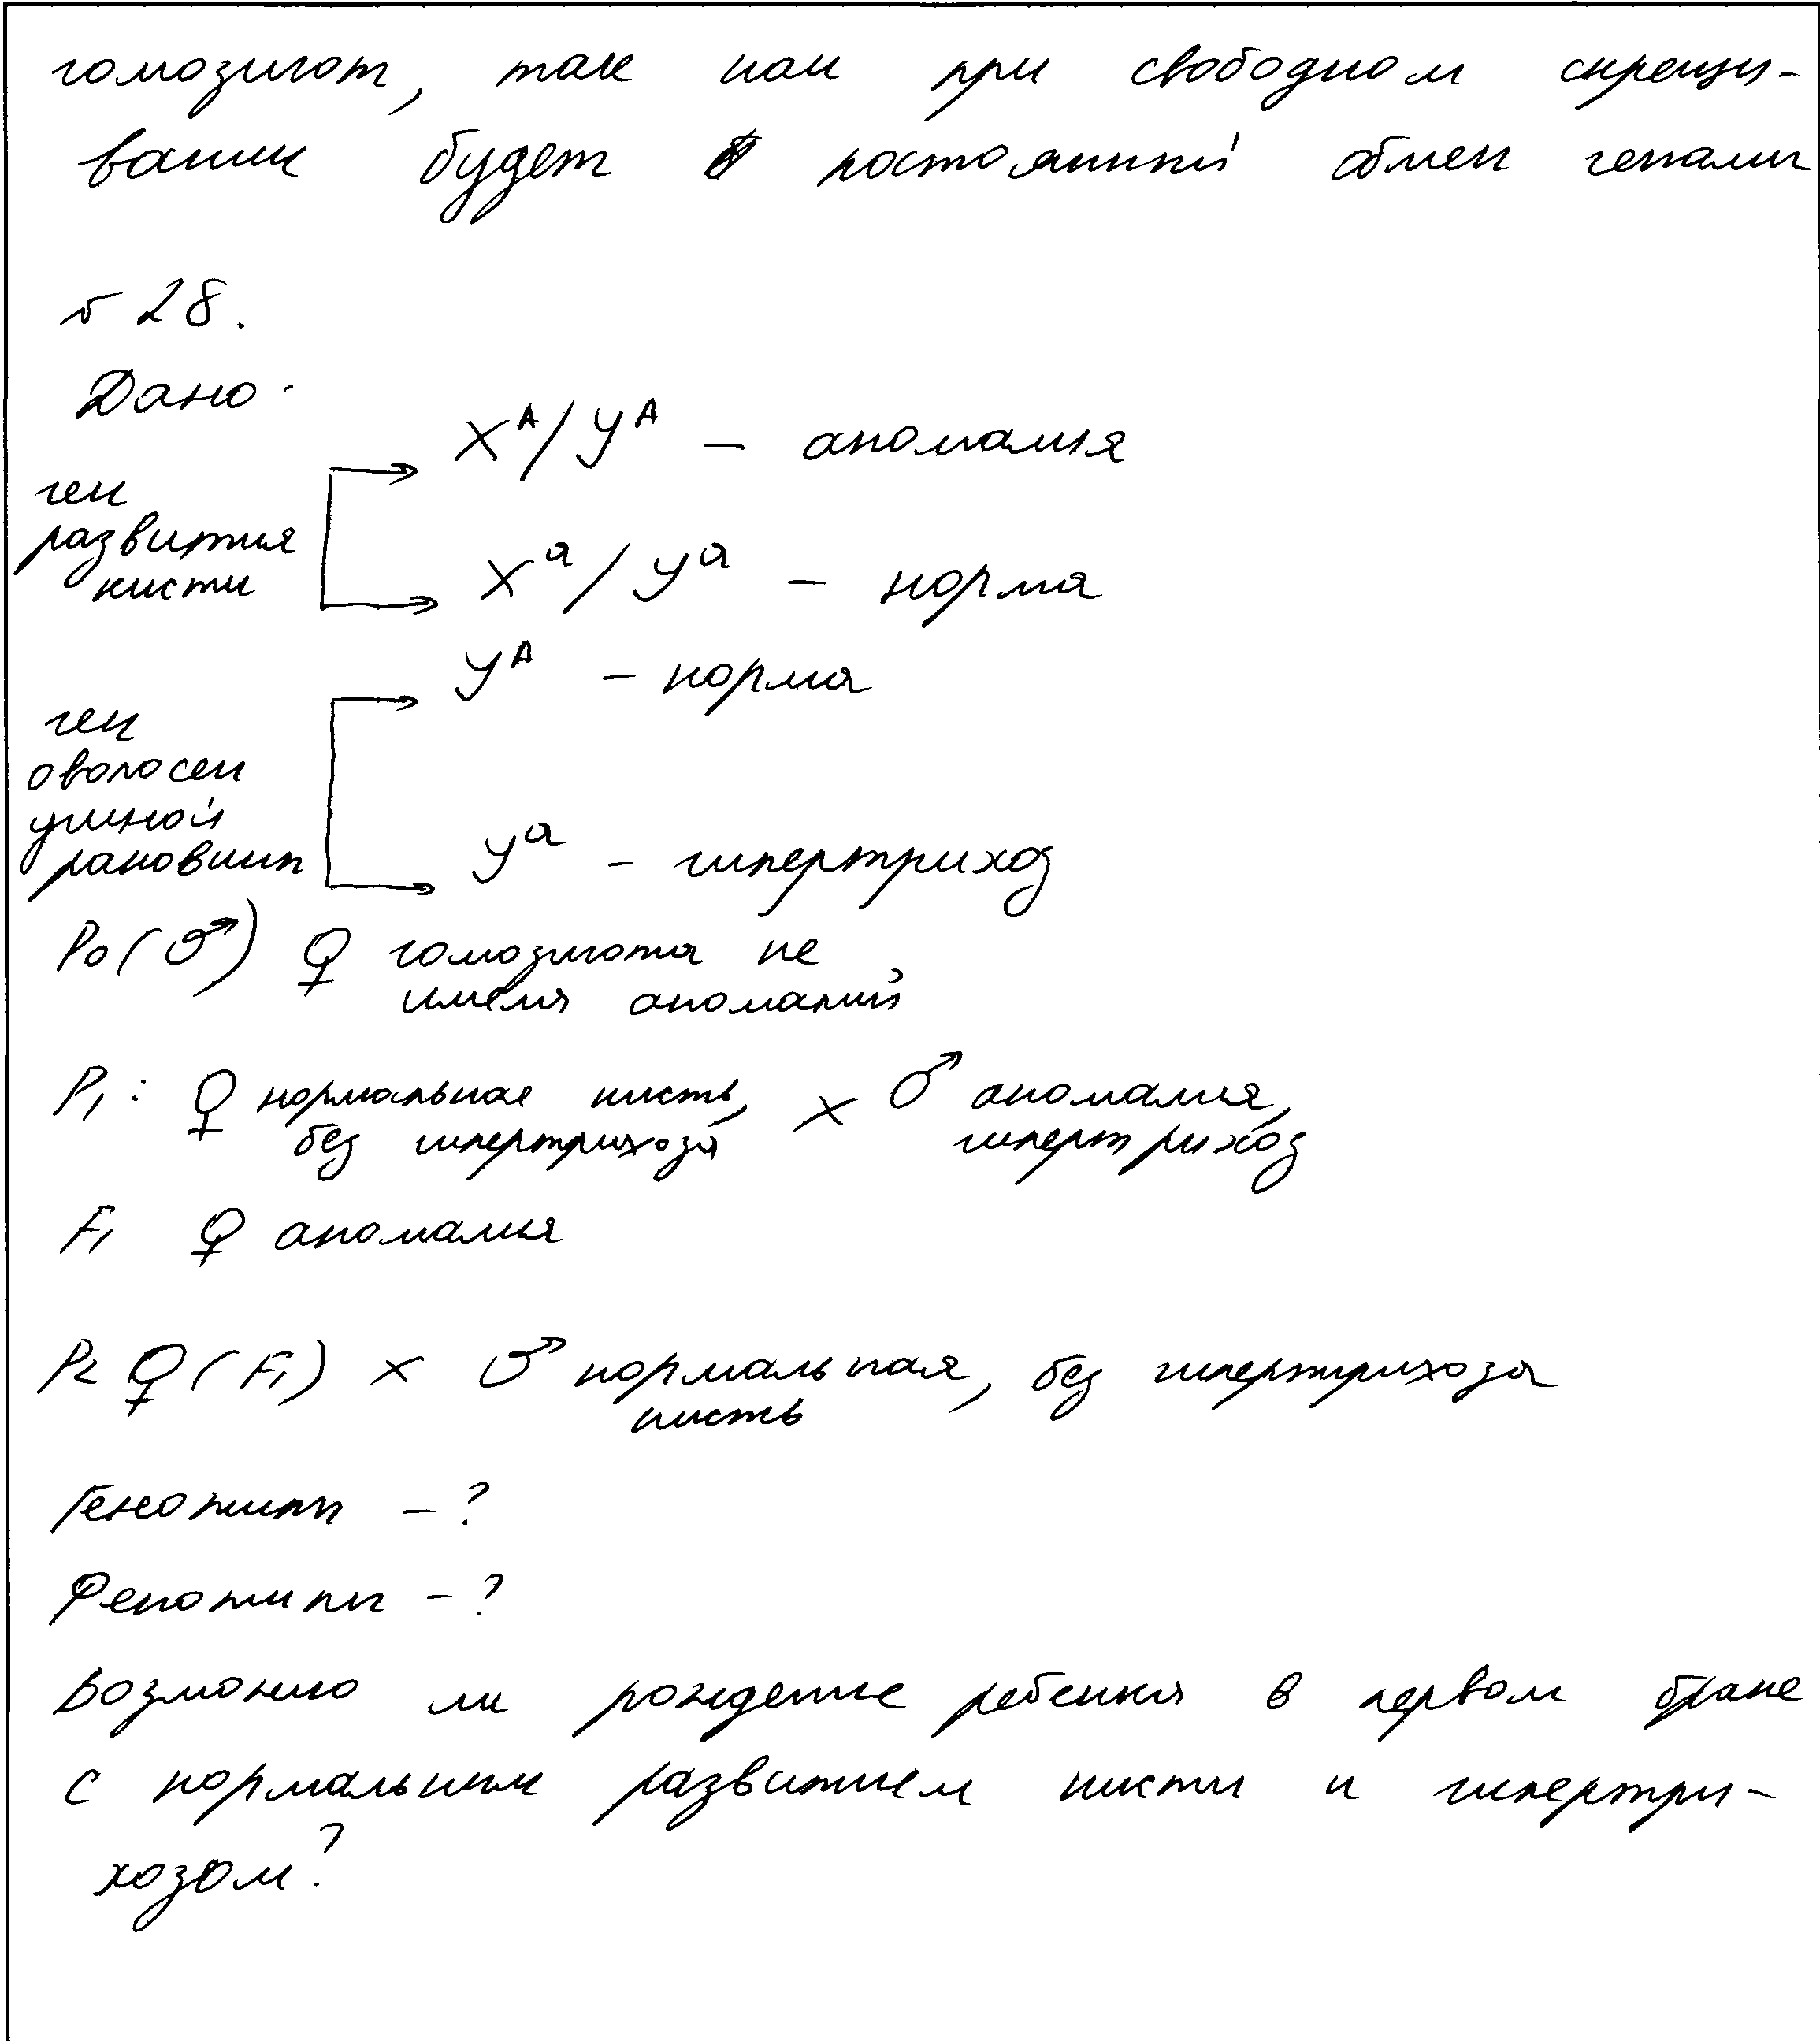 гомозигот, так как при свободном скрещи-
вании будет постоянный обмен генами
№ 28.
Дано:
X^A/Y^A – аномалия
ген
развития
кисти
X^a/Y^a – норма
Y^A – норма
ген
оволосен
ушной
раковины
Y^a – гипертрихоз
P0 (♂) ♀ гомозигота не
имела аномалий
P1: ♀ нормальная кисть, × ♂ аномалия,
без гипертрихоза гипертрихоз
F1 ♀ аномалия
P2 ♀ (F1) × ♂ нормальная, без гипертрихоза
кисть
Генотипы – ?
Фенотипы – ?
Возможно ли рождение ребенка в первом браке
с нормальным развитием кисти и гипертри-
хозом?